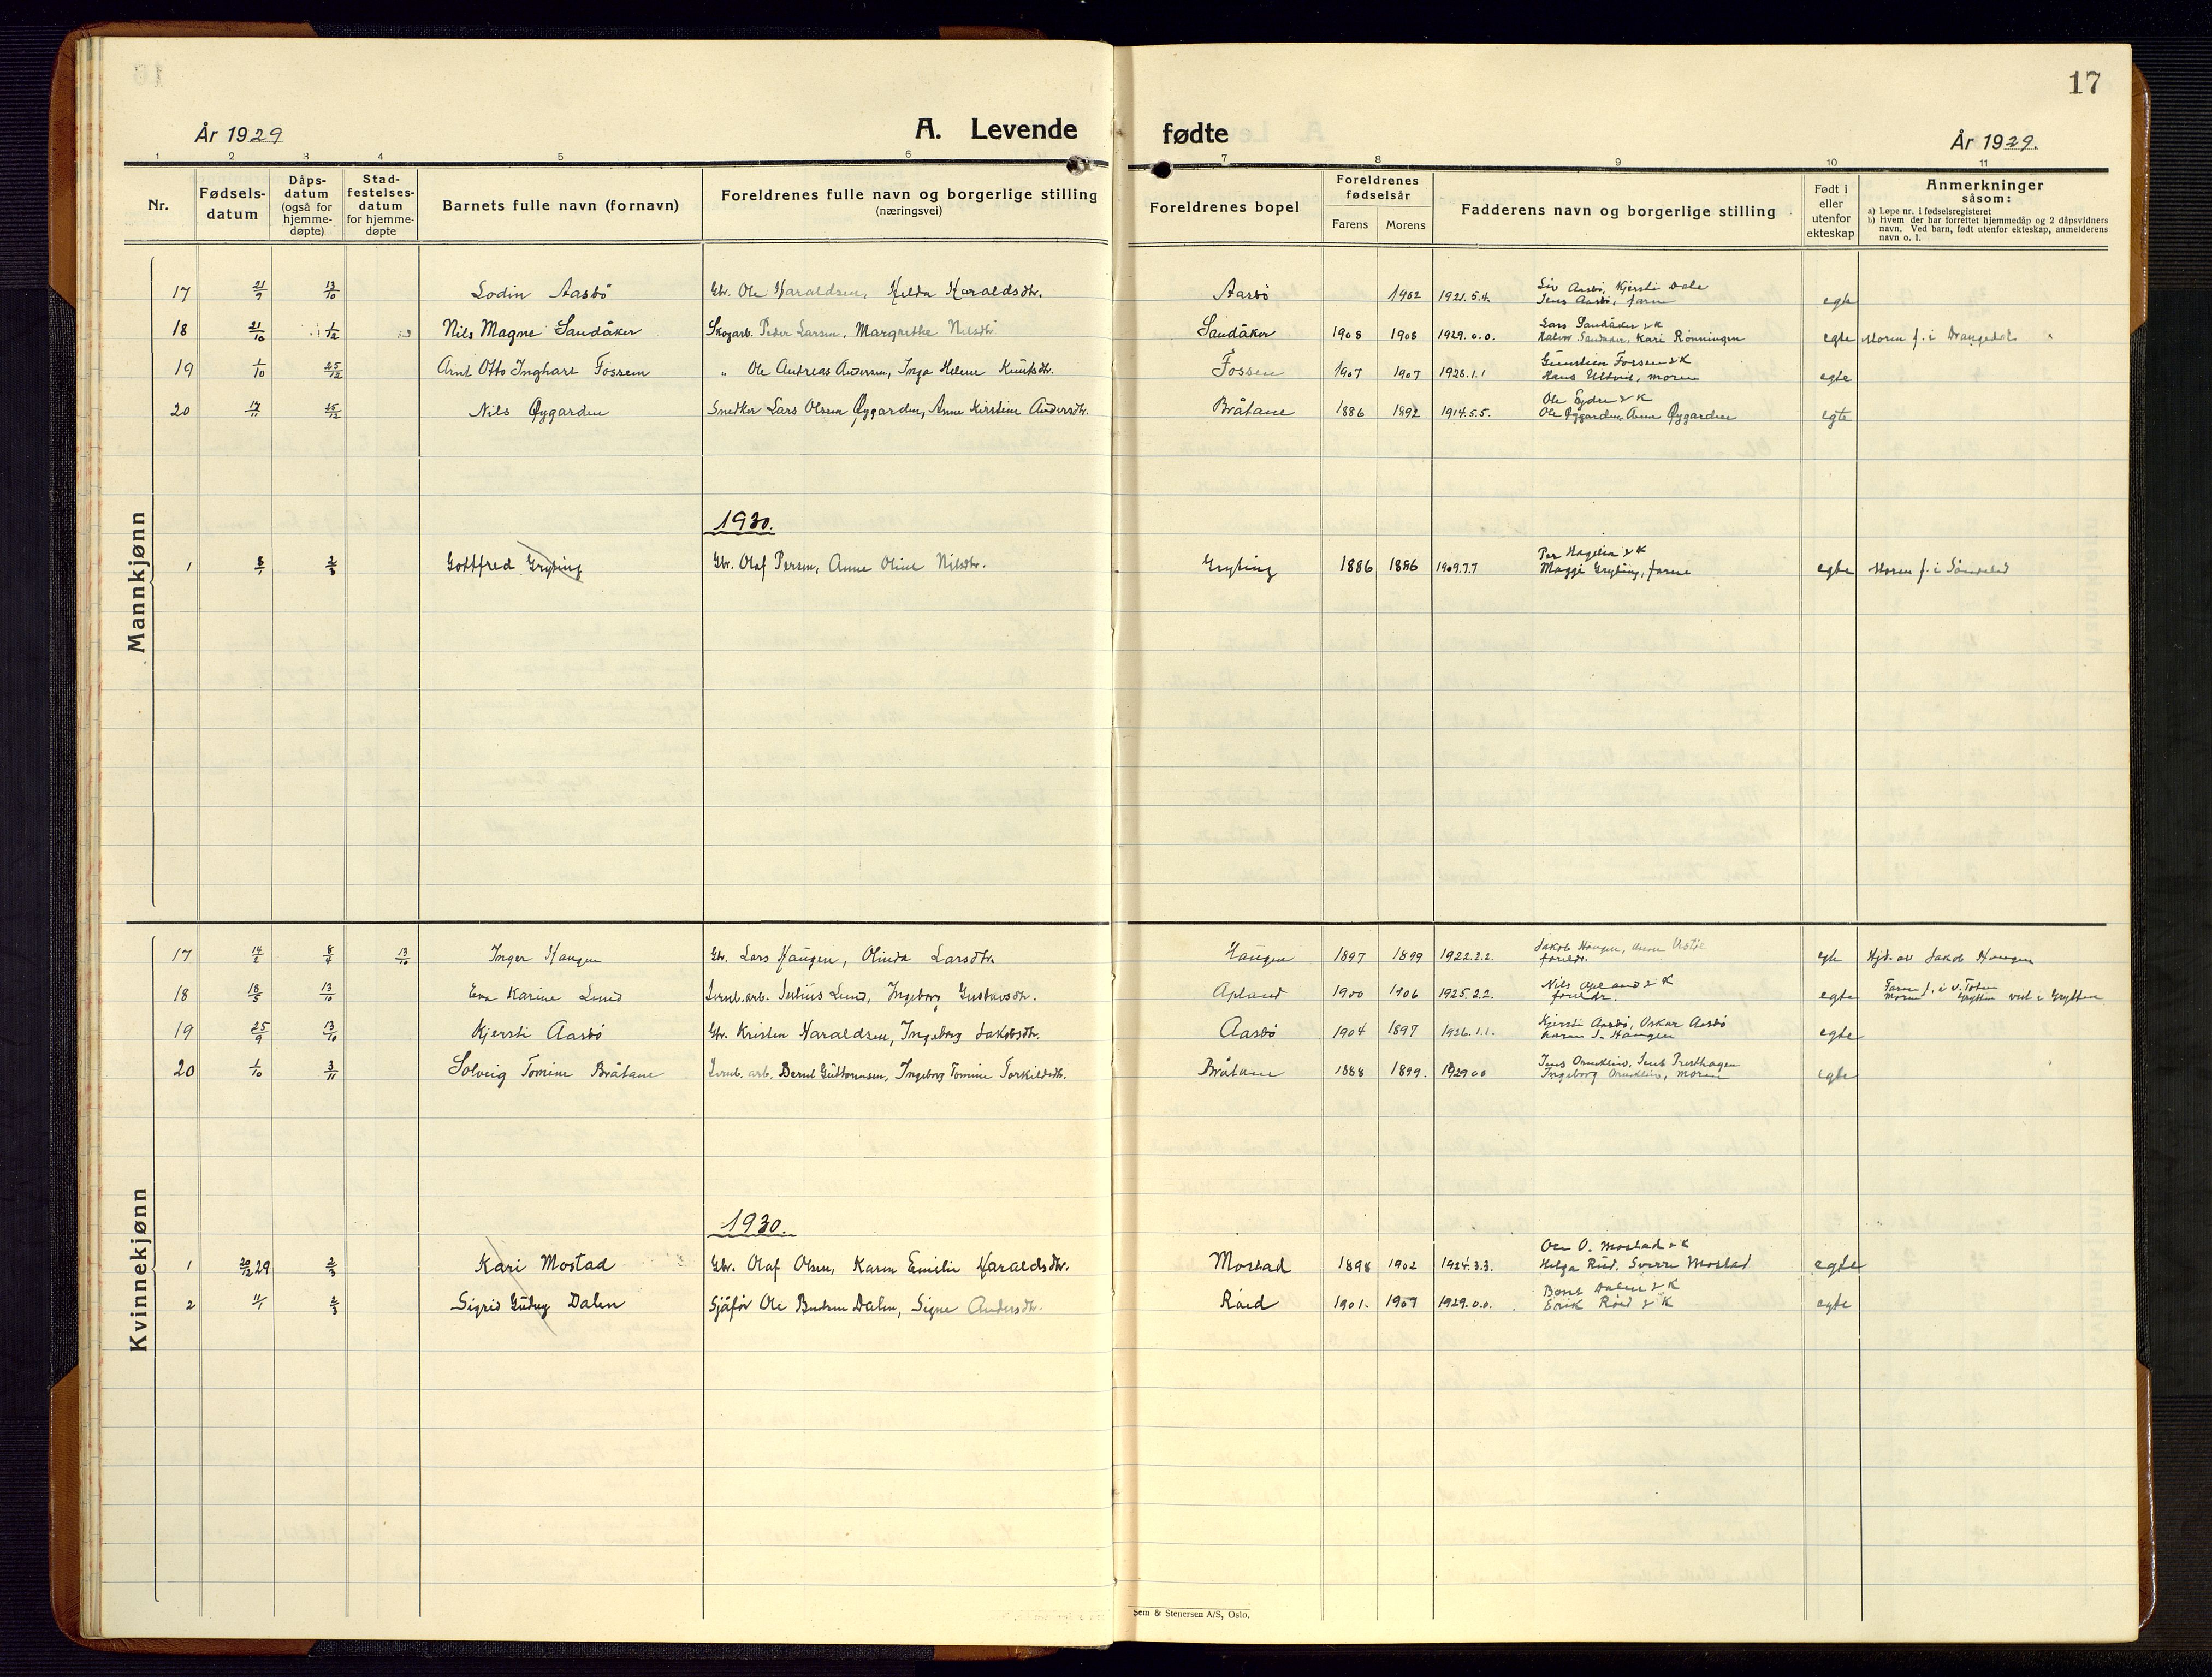 17
År 1929
A. Levende fødte
År 1929.
1 2 3 4 5 6 7 8 9 10 11
Nr.
Fødsels-
datum
Dåps-
datum
(også for
hjemme-
døpte)
Stad-
festelses-
datum
for hjemme-
døpte
Barnets fulle navn (fornavn)
Foreldrenes fulle navn og borgerlige stilling
(næringsvei)
Foreldrenes bopel
Foreldrenes
fødselsår
Farens Morens
Fadderens navn og borgerlige stilling
Født i
eller
utenfor
ekteskap
Anmerkninger
såsom:
a) Løpe nr. i fødselsregisteret
b) Hvem der har forrettet hjemmedåp og 2 dåpsvidners
navn. Ved barn, født utenfor ekteskap, anmelderens
navn o. l.
Mannkjønn
17 21/9 13/10 Lodin Aasbö Gbr. Ole Haraldsen, Hilda Haraldsdtr. Aasbö 1902 1921.5.4. Liv Aasbö, Kjersti Dale
Jens Aasbö, faren egte
18 21/10 1/12 Nils Magne Sandåker Skogarb. Peder Larsen, Margrethe Nilsdtr. Sandåker 1908 1908 1929.0.0. Lars Sandåker & K
Halvor Sandåker, Kari Rönningen egte Moren f. i Drangedal
19 1/10 25/12 Arnt Otto Inghart Fossem " Ole Andreas Andersen, Inga Helene Knutsdtr. Fossen 1907 1907 1928.1.1 Gunstein Fossen & K
Hans Ultveit, moren egte
20 17/11 25/12 Nils Øygarden Snedker Lars Olsen Øygarden, Anne Kirstine Andersdtr. Bråtane 1886 1892 1914.5.5. Ole Eydre & K
Ole Øygarden, Anne Øygarden egte
1930.
1 8/1 2/3 Gottfred Gryting Gbr. Olaf Persen, Anne Oline Nilsdtr. Gryting 1886 1886 1909.7.7 Per Hagelia & K
Maggi Gryting, faren egte Moren f. i Söndeled
Kvinnekjønn
17 14/2 8/4 13/10 Inger Haugen Gbr. Lars Haugen, Olinda Larsdtr. Haugen 1897 1899 1922.2.2. Jakob Haugen, Anne
foreldr. egte Hjd. av Jakob Haugen
18 18/5 13/10 Eva Karine Lund Jernb.arb. Julius Lund, Ingeborg Gustavsdtr. Apland 1900 1906 1925.2.2. Nils Apland & K
foreldr. egte Faren f. i V. Toten
Moren Grytten ved i Grytten
19 25/9 13/10 Kjersti Aasbö Gbr. Kristen Haraldsen, Ingeborg Jakobsdtr. Aasbö 1904 1897 1926.1.1. Kjersti Aasbö, Oskar Aasbö
Haugen egte
20 1/10 3/11 Solveig Tomine Bråtane Jernb. arb. Bernt Guttormsen, Ingeborg Tomine Torkildsdtr. Bråtane 1888 1899. 1929 00 Jens Ormkleiv, Jens Presthagen
Ingeborg Ormkleiv, moren egte
1930.
1 30/12 29 2/3 Kari Mostad Gbr. Olaf Olsen, Karen Emilie Haraldsdtr. Mostad 1898 1902 1924.3.3. Ole O. Mostad & K
Helga Riid, Sverre Mostad egte
2 11/1 2/3 Sigrid Gudny Dalen Sjåför Ole Berntsen Dalen, Signe Andersdtr. Röed 1901. 1907 1929.0.0. Bernt Dalen & K
Erik Röed & K egte
Sem & Stenersen A/S, Oslo.